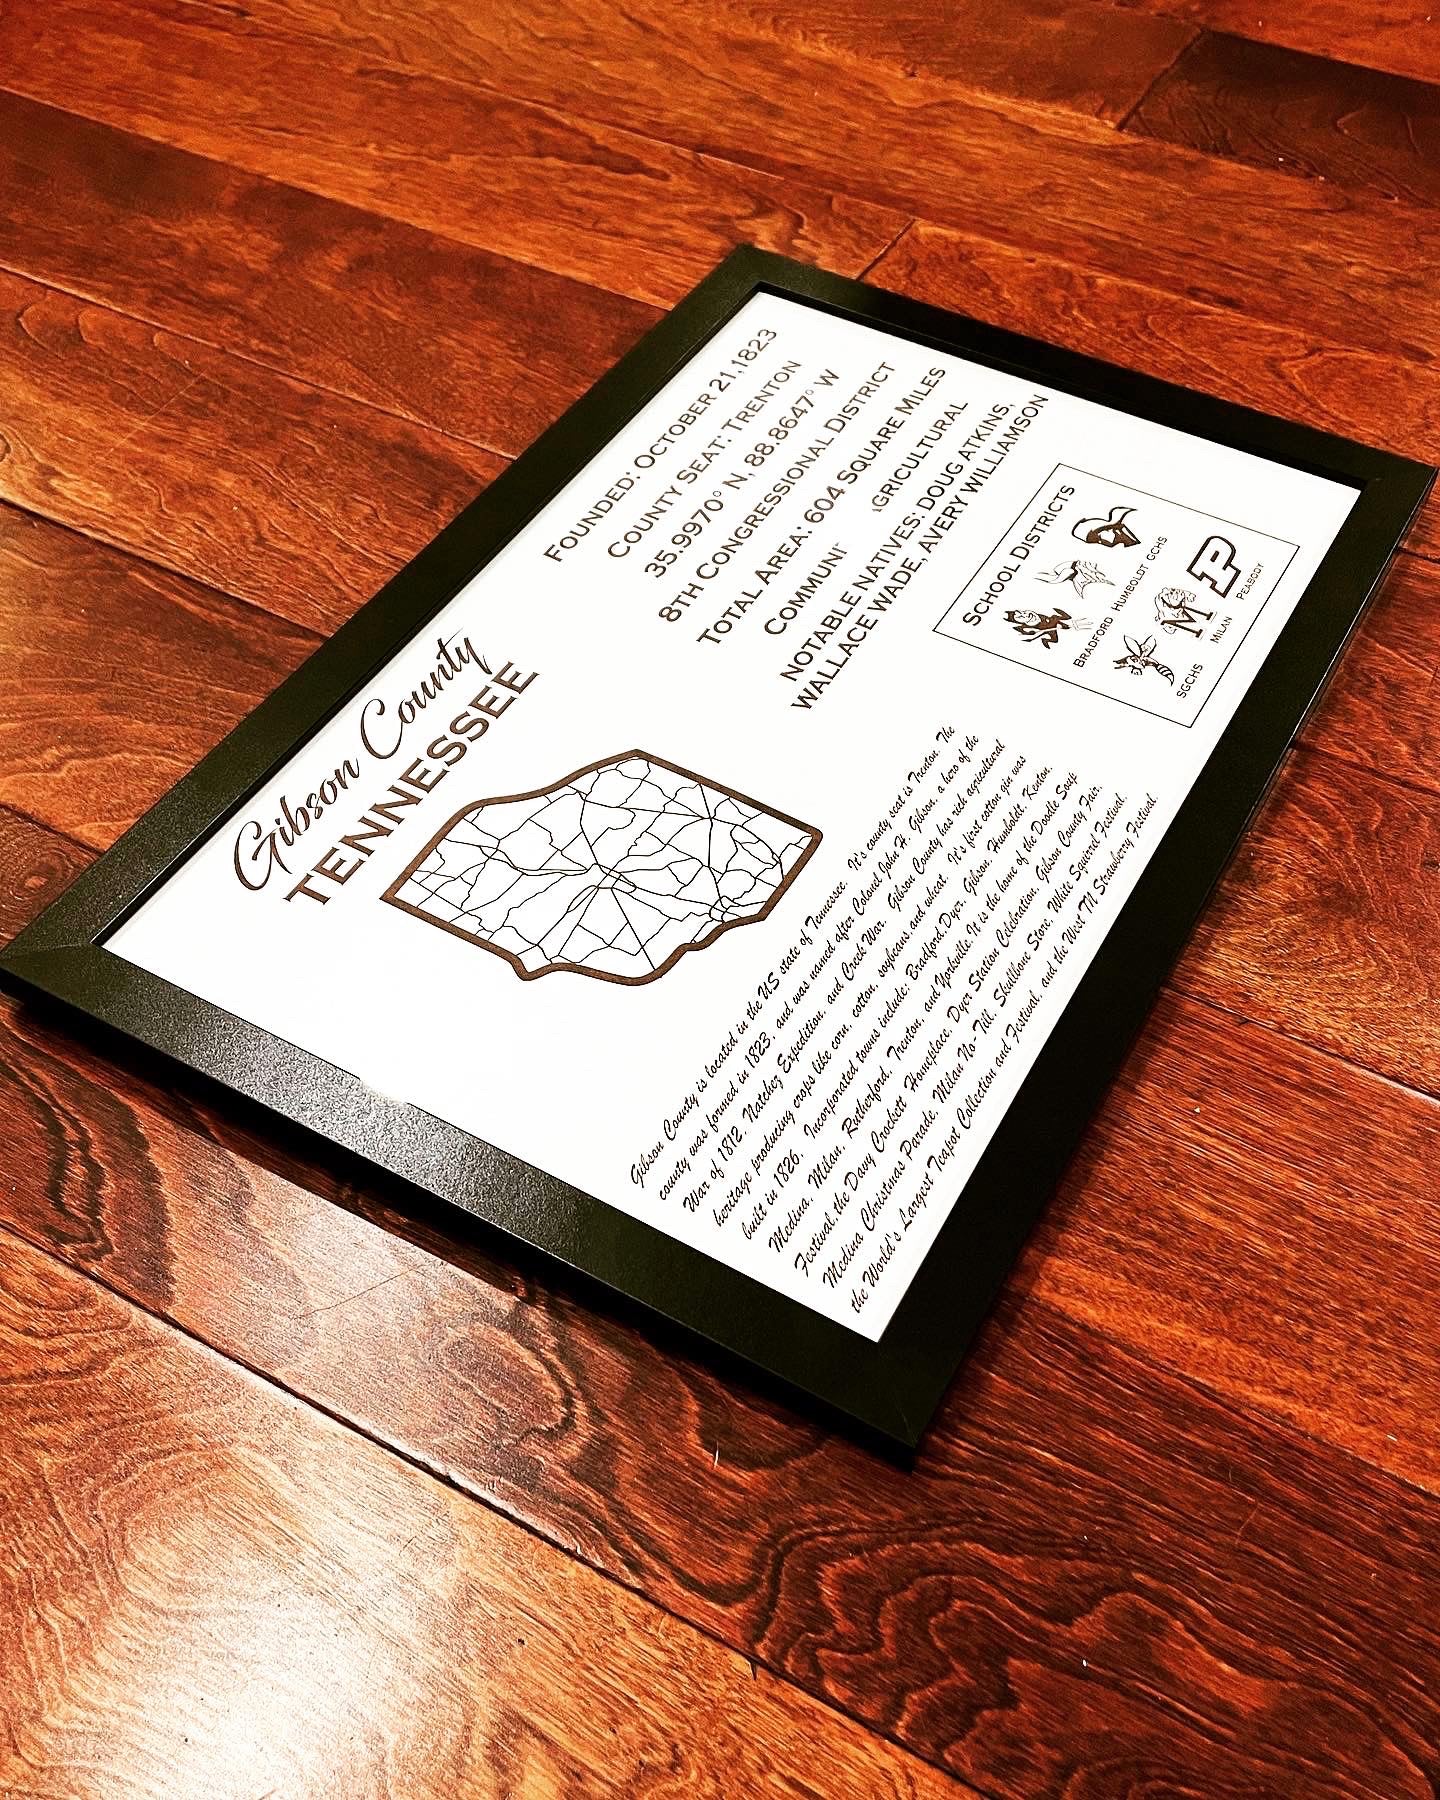 Gibson County
TENNESSEE
FOUNDED: OCTOBER 21,1823
COUNTY SEAT: TRENTON
35.9970° N, 88.8647° W
8TH CONGRESSIONAL DISTRICT
TOTAL AREA: 604 SQUARE MILES
COMMUNI GRICULTURAL
NOTABLE NATIVES: DOUG ATKINS,
WALLACE WADE, AVERY WILLIAMSON
SCHOOL DISTRICTS
BRADFORD HUMBOLDT GCHS
M P
SGCHS MILAN PEABODY
Gibson County is located in the US state of Tennessee. It's county seat is Trenton. The
county was formed in 1823, and was named after Colonel John H. Gibson, a hero of the
War of 1812, Natchez Expedition, and Creek War. Gibson County has rich agricultural
heritage producing crops like corn, cotton, soybeans, and wheat. It's first cotton gin was
built in 1826. Incorporated towns include; Bradford, Dyer, Gibson, Humboldt, Kenton,
Medina, Milan, Rutherford, Trenton, and Yorkville. It is the home of the Doodle Soup
Festival, the Davy Crockett Homeplace, Dyer Station Celebration, Gibson County Fair,
Medina Christmas Parade, Milan No-Till, Skullbone Store, White Squirrel Festival,
the World's Largest Teapot Collection and Festival, and the West TN Strawberry Festival.